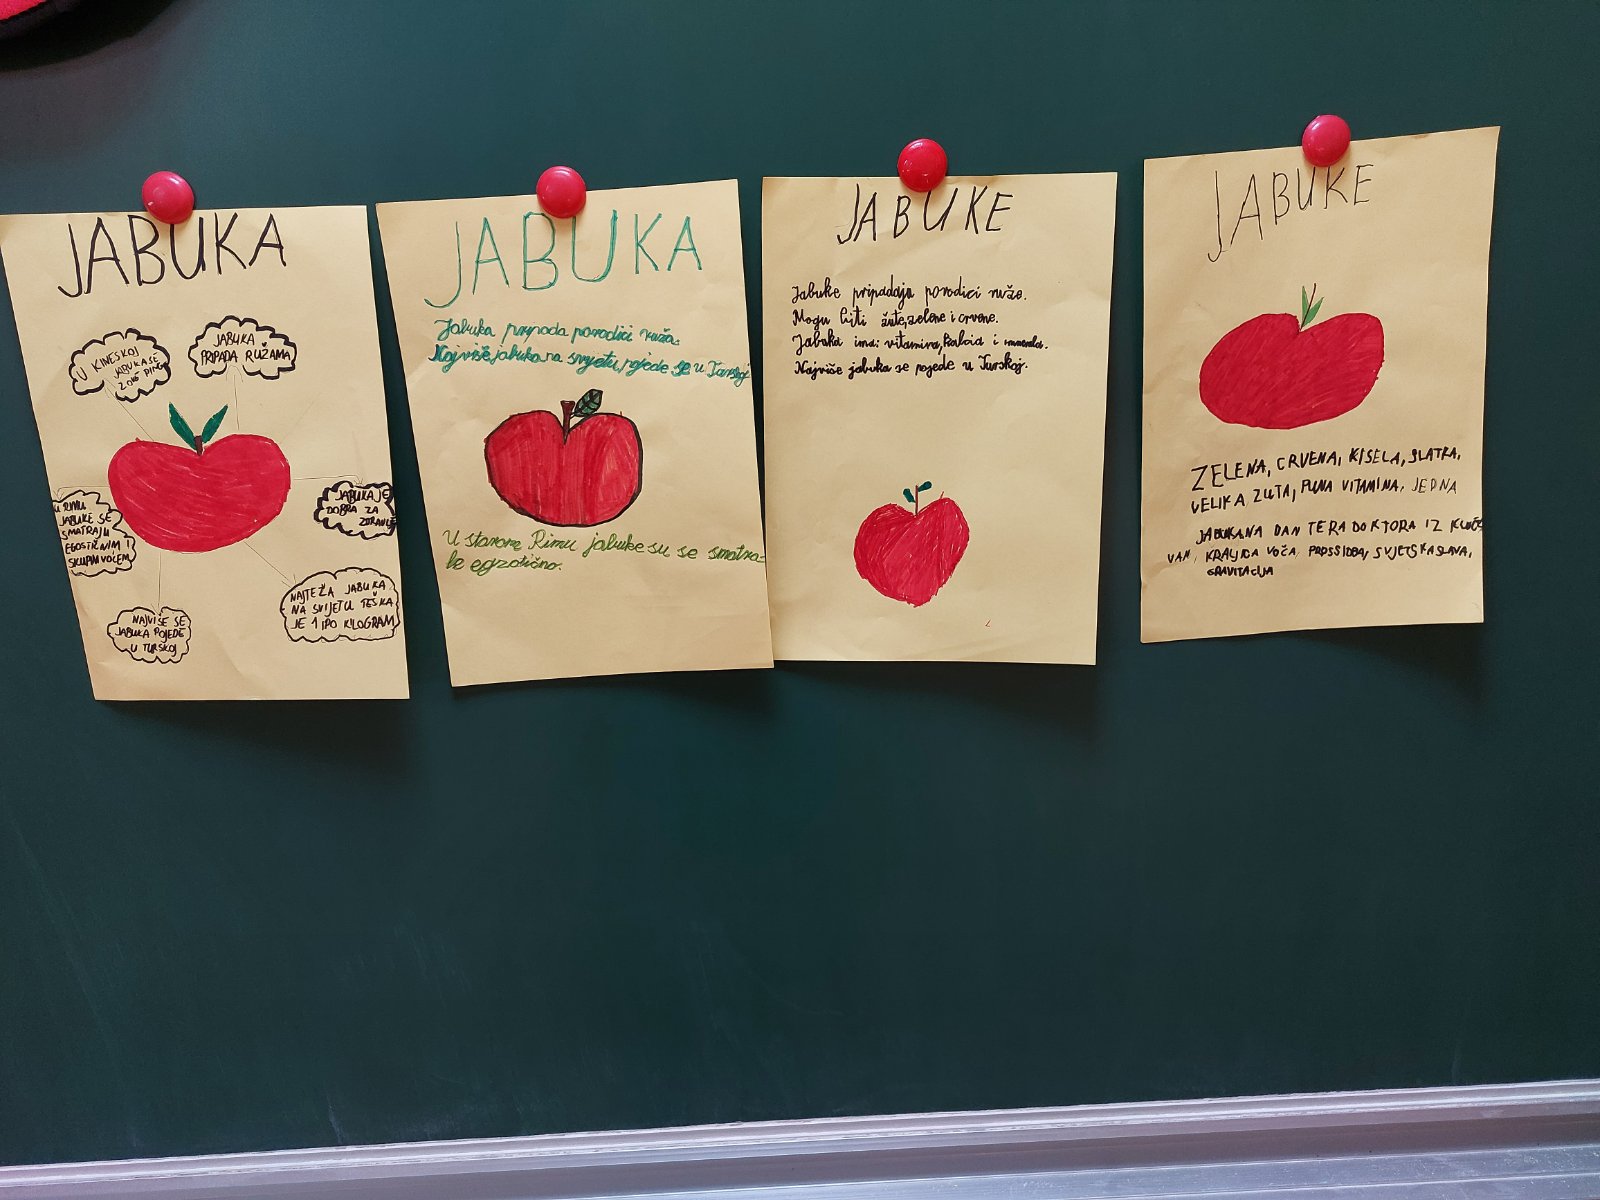 JABUKA
U KINESKOJ
JABUKA SE
ZOVE PING
JABUKA
PRIPADA RUŽAMA
U RIMU
JABUKE SE
SMATRAJU
I
SKUPIM VOĆEM
JABUKA JE
DOBRA ZA
ZDRAVLJE
NAJVIŠE SE
JABUKA POJEDE
U TURSKOJ
NAJTEŽA JABUKA
NA SVIJETU TEŠKA
JE 1 IPO KILOGRAM
JABUKA
Jabuka pripada porodici ruža.
Najviše jabuka na svijetu, pojede se u Turskoj
U starome Rimu jabuke su se smatra-
le egzotično.
JABUKE
Jabuke pripadaju porodici ruže.
Mogu biti žute, zelene i crvene.
Jabuka ima: vitamina, kalcia i minerala.
Najviše jabuka se pojede u Turskoj.
JABUKE
ZELENA, CRVENA, KISELA, SLATKA,
VELIKA, ZUTA, PUNA VITAMINA, JEDNA
JABUKA NA DAN TERA DOKTORA IZ KUĆE
KRALJICA VOĆA, SVJETSKA SLAVA,
GRAVITACIJA